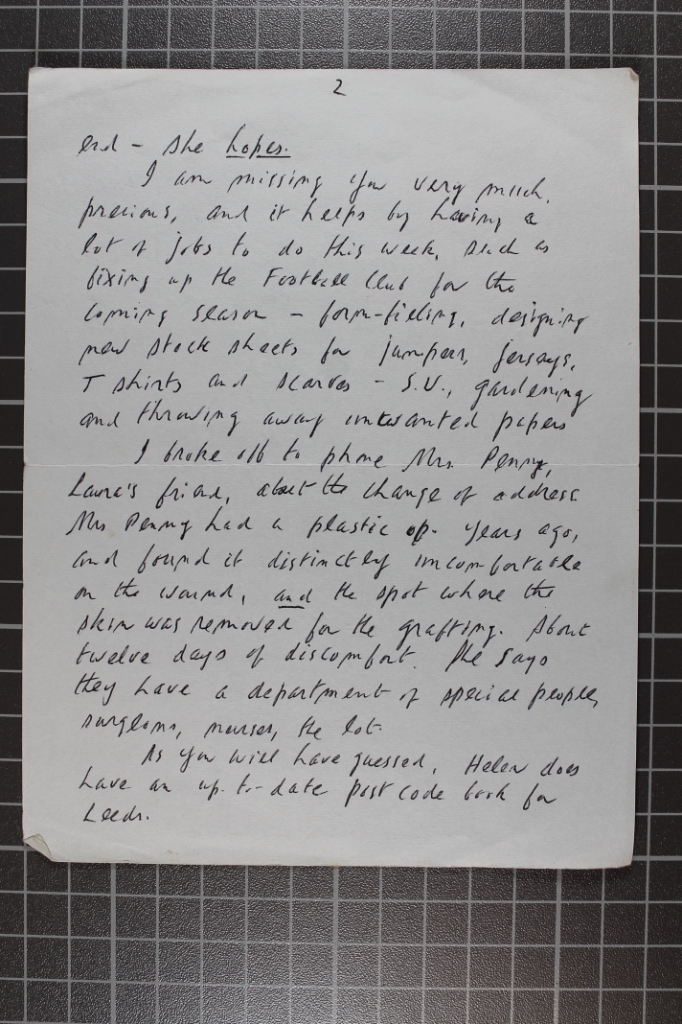 2
end - she hopes.
I am missing you very much,
precious, and it helps by having a
lot of jobs to do this week, such as
fixing up the Football Club for the
coming season - form-filling, designing
new stock sheets for jumpers, jerseys,
T shirts and scarves - S.U., gardening
and throwing away unwanted papers
I broke off to phone Mrs. Penny,
Laura's friend, about the change of address.
Mrs Penny had a plastic op. years ago,
and found it distinctly uncomfortable
on the wound, and the spot where the
skin was removed for the grafting. About
twelve days of discomfort. She says
they have a department of special people,
surgeons, nurses, the lot.
As you will have guessed, Helen does
have an up-to-date post code book for
Leeds.